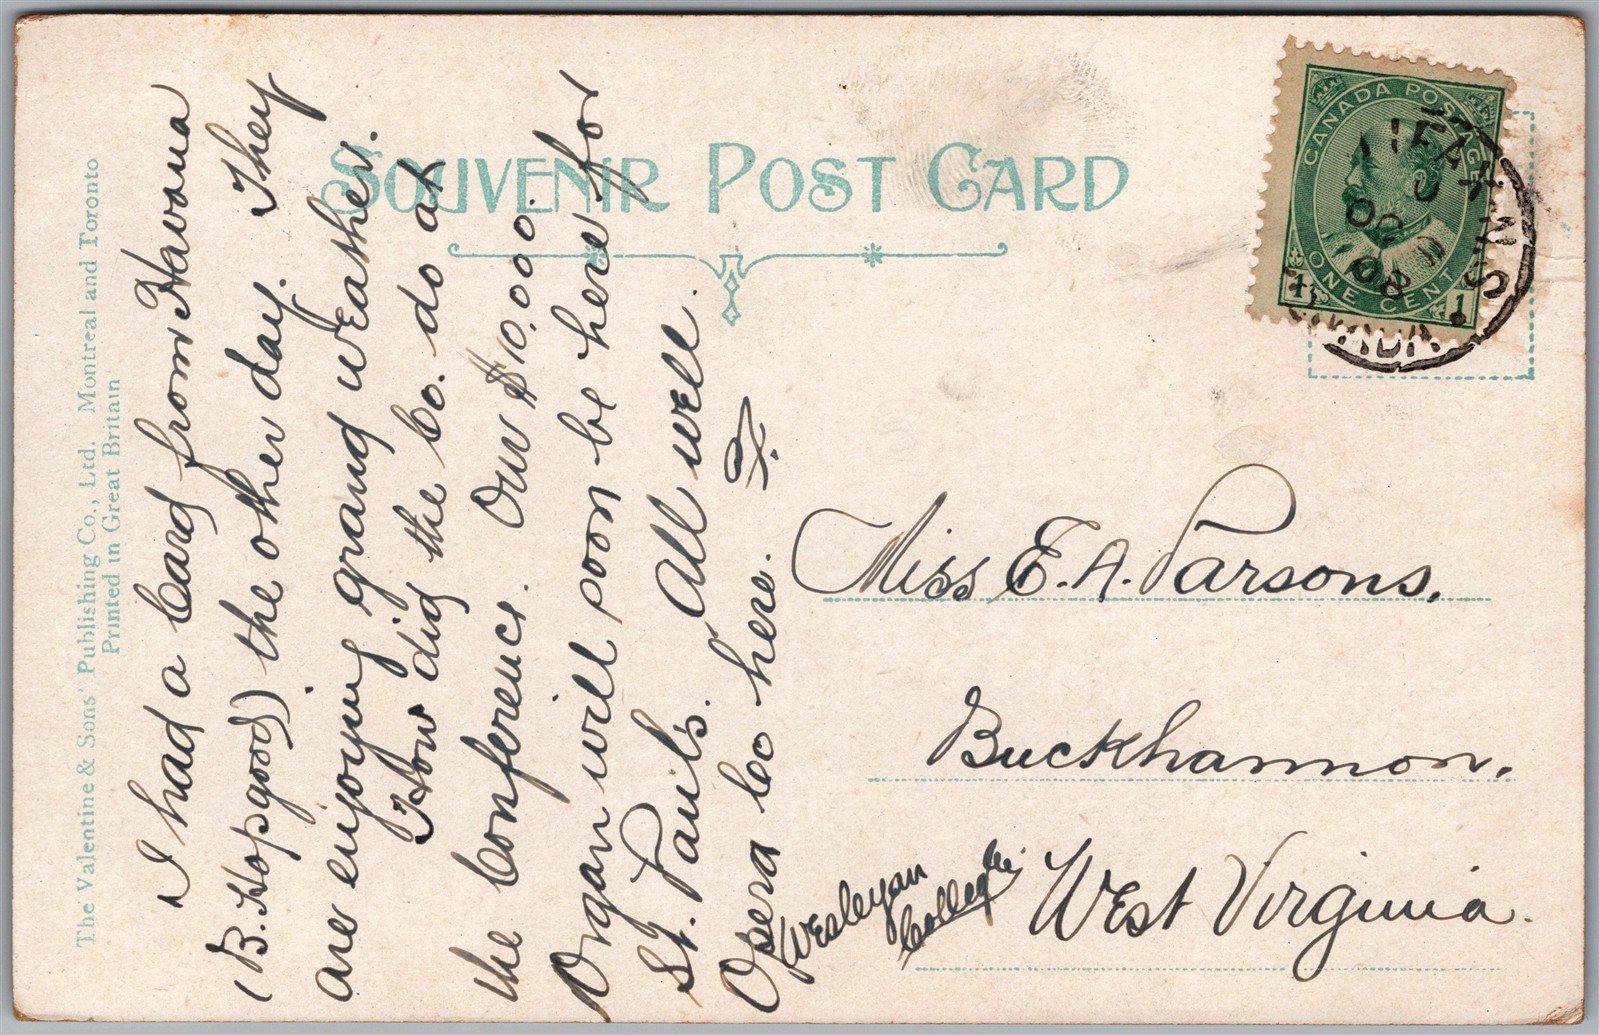 The Valentine & Sons' Publishing Co., Ltd. Montreal and Toronto
Printed in Great Britain
SOUVENIR POST CARD
CANADA POSTAGE
ONE CENT
1 1
HALIFAX
08
CANADA
I had a Card from Havana
(B. Hopgood) the other day. They
are enjoying grand weather.
How did the Co. do at
the Conference. Our $10,000.
Organ will soon be here for
St. Paul's. All well.
Opera Co here.
Miss E. A. Parsons,
Buckhannon,
West Virginia.
Wesleyan
College